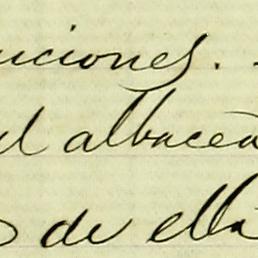 uciones.
el albacea
de ella